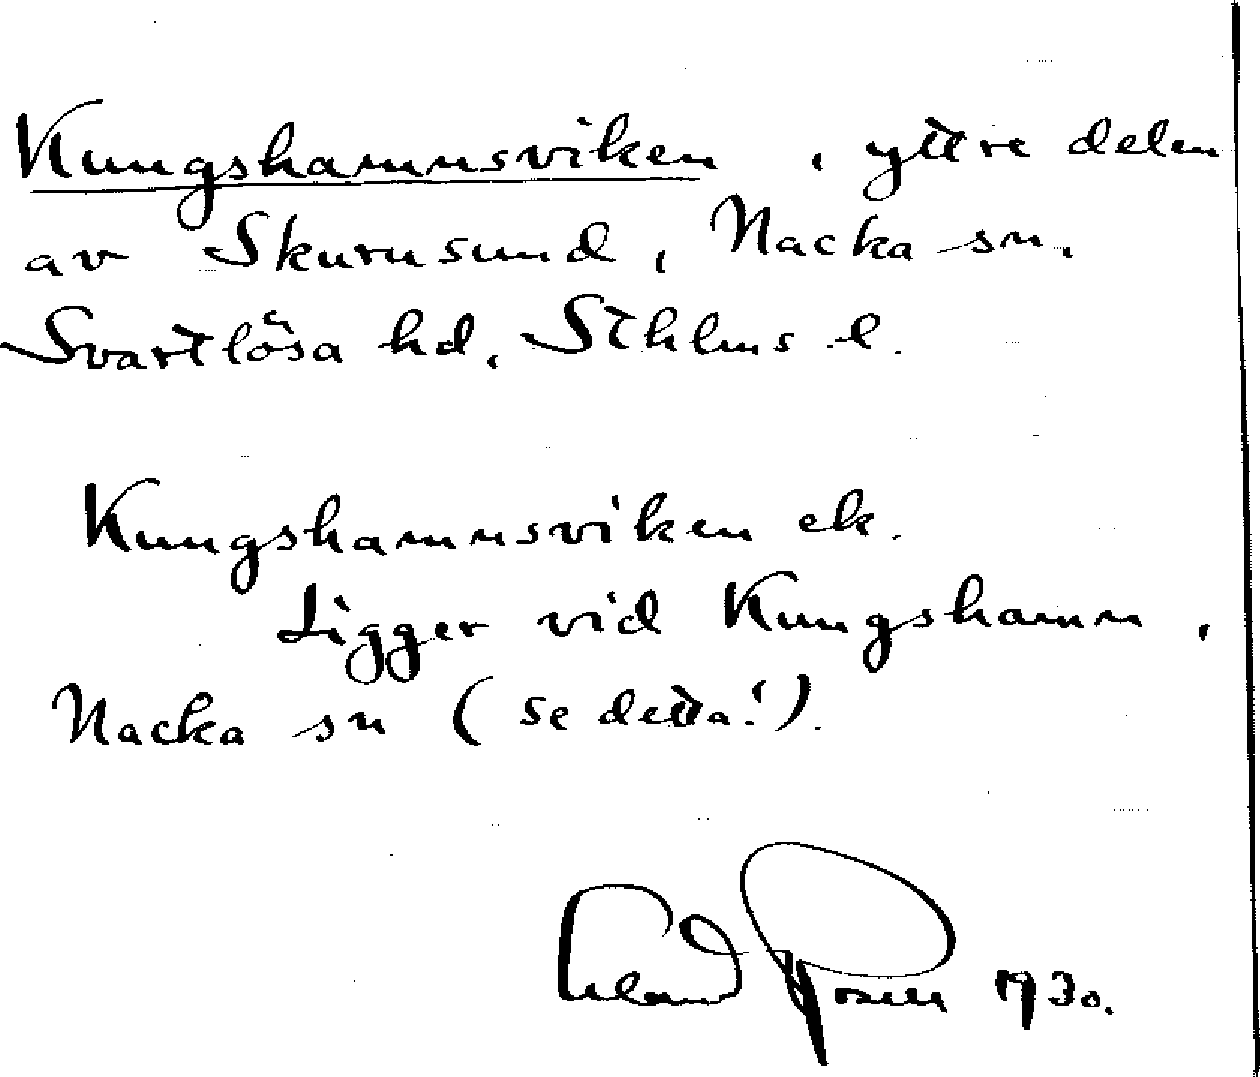 Kungshamnsviken, yttre delen
av Skurusund, Nacka sn,
Svartlösa hd, Sthlms l.
Kungshamnsviken ek.
Ligger vid Kungshamn,
Nacka sn (se detta!).
Erland Rosell 1930.